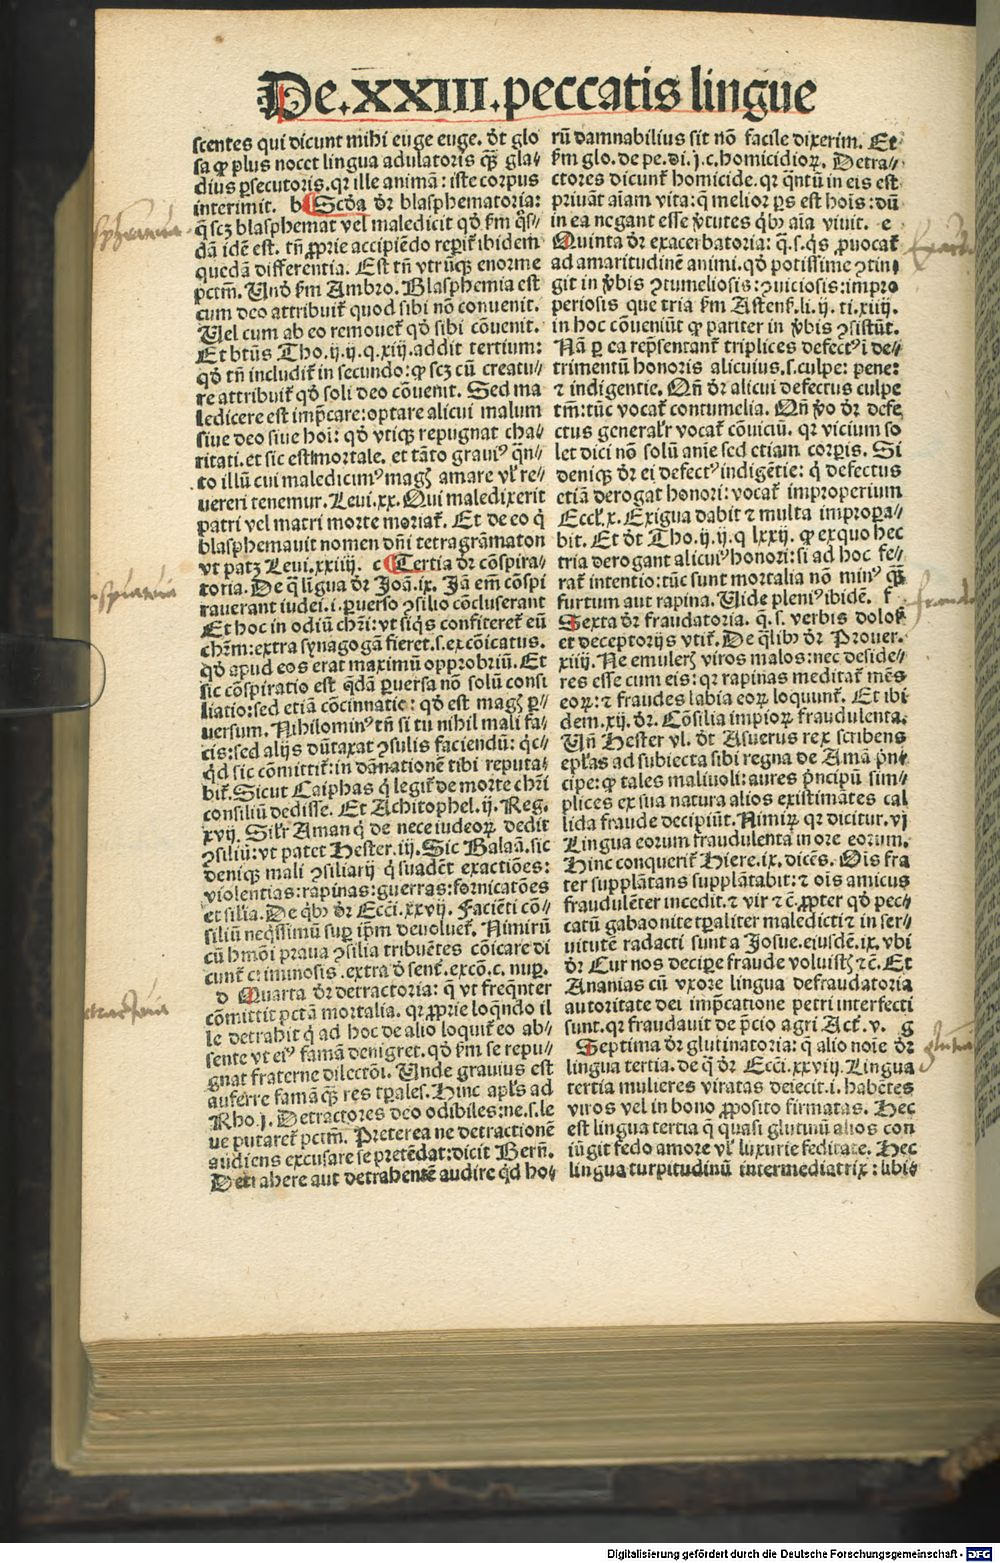 De.XXIII.peccatis lingue
scentes qui dicunt mihi euge euge. ōt glo
sa ꝙ plus nocet lingua adulatoris qꝫ̄ gla⸗
dius ꝑsecutoris.qr ille animā: iste corpus
interimit. b Scōa ōr blasphematoria:
q̄ scꝫ blasphemat vel maledicit qō ẜm q̄s⸗
dā idē est. tn̄ ꝓprie accipiēdo reperiť ibidem
quedā differentia. Est tn̄ vtrūqꝫ enorme
pctm̄. Unō ẜm Ambro. Blasphemia est
cum deo attribuiť quod sibi nō conuenit.
Uel cum ab eo remoueť qō sibi cōuenit.
Et btūs Tho.ij.ij.q.xiij.addit tertium:
qō tn̄ includiť in secundo: ꝙ scꝫ cū creatu⸗
re attribuiť qō soli deo cōuenit. Sed ma
ledicere est imp̄care: optare alicui malum
siue deo siue hoi: qō vtiqꝫ repugnat cha⸗
ritati.et sic est mortale. et tāto grauiꝰ q̄n⸗
to illū cui maledicimꝰ magꝭ amare vl̓ re⸗
uereri tenemur. Leui.xx. Qui maledixerit
patri vel matri morte moriať. Et de eo q̇
blasphemauit nomen dn̄i tetragrāmaton
vt patꝫ Leui.xxiiij. c Tertia ōr cōspira⸗
toria. De q̄ lingua ōr Joā.ix. Jā em̄ cōspi
rauerant iudei.i.ꝑuerso ꝯsilio cōcluserant
Et hoc in odiū chr̄i: vt siq̇s confitereť eū
chr̄m: extra synagogā fieret.s.excōicatus.
qō apud eos erat maximū opprobriū. Et
sic cōspiratio est q̄dā ꝑuersa nō solū consi
liatio: sed etiā cōcinnatio: qō est magꝭ ꝑ⸗
uersum. Nihilominꝰ tn̄ si tu nihil mali fa⸗
cis: sed alijs dūtaxat ꝯsulis faciendū: q̇c⸗
q̇d sic cōmittiť: in dānationē tibi reputa⸗
biť. Sicut Caiphas q̇ legiť de morte chr̄i
consiliū dedisse. Et Achitophel.ij.Reg.
xvij. Sil̓r Aman q̇ de nece iudeoꝝ dedit
ꝯsiliū: vt patet Hester.iij. Sic Balaā.sic
denique mali ꝯsiliarij q̇ suadēt exactiōes:
violentias: rapinas: guerras: fornicatōes
et silia. De qͥbꝰ ōr Ecci.xxvij. Faciēti cō⸗
siliū neq̇ssimū suꝑ ip̄m deuolueť. Nimirū
cū hmōi praua ꝯsilia tribuētes cōicare di
cunť criminosis.extra ō sent̓.excō.c. nuꝑ.
d Quarta ōr detractoria: q̄ vt freq̄nter
cōmittit pctā mortalia. qr ꝓprie loq̄ndo il
le detrahit q̇ ad hoc de alio loquiť eo ab⸗
sente vt eiꝰ famā denigret. qō ẜm se repu⸗
gnat fraterne dilectōi. Unde grauius est
auferre famā qꝫ̄ res tꝑales. Hinc apl̓s ad
Rho.j. Detractores deo odibiles: ne.s.le
ue putareť pctm̄. Preterea ne detractionē
audiens excusare se pretēdat: dicit Bern̄.
Detrahere aut detrahentē audire q̇d ho⸗
rū damnabilius sit nō facile dixerim. Et
ẜm glo.de pe.di.j.c.homicidioꝝ. Detra⸗
ctores dicunť homicide. qr q̄ntū in eis est
priuāt aīam vita: q̄ melior ꝑs est hoīs: dū
in ea negant esse v̓tutes qͥbꝰ aīa viuit. e
Quinta ōr exacerbatoria: q̄.s.q̇s ꝓuocať
ad amaritudinē animi.qō potissime ꝯtin⸗
git in v̓bis ꝯtumeliosis: ꝯuiciosis: impro
periosis que tria ẜm Astens̓.li.ij.ti.xiiij.
in hoc cōueniūt ꝙ pariter in v̓bis ꝯsistūt.
Nā ꝑ ea rep̄sentanť triplices defectꝰ i de⸗
trimentū honoris alicuius.s.culpe: pene:
⁊ indigentie. Qn̄ ōr alicui defectus culpe
tm̄: tūc vocať contumelia. Qn̄ v̓o ōr defe
ctus general̓r vocať cōuiciū. qr vicium so
let dici nō solū anīe sed etiam corꝑis. Si
deniqꝫ ōr ei defectꝰ indigētie: q̇ defectus
etiā derogat honori: vocať improperium
Eccl̓.x. Exigua dabit ⁊ multa impropa⸗
bit. Et ōt Tho.ij.ij.q lxxij. ꝙ exquo hec
tria derogant alicuiꝰ honori: si ad hoc fe⸗
rať intentio: tūc sunt mortalia nō minꝰ qꝫ̄
furtum aut rapina. Uide pleniꝰ ibidē. f
Sexta ōr fraudatoria. q̄.s. verbis dolos̓
et deceptorijs vtiť. De q̄libꝰ ōr Prouer.
xiiij. Ne emulerꝭ viros malos: nec deside⸗
res esse cum eis: qr rapinas meditať mēs
eoꝝ: ⁊ fraudes labia eoꝝ loquunť. Et ibi
dem.xij. ōr. Cōsilia impioꝝ fraudulenta.
Un̄ Hester vl. ōt Asuerus rex scribens
epl̓as ad subiecta sibi regna de Amā p̓n⸗
cipe: ꝙ tales maliuoli: aures p̓ncipū sim⸗
plices ex sua natura alios existimātes cal
lida fraude decipiūt. Nimiꝝ qr dicitur.vj
Lingua eorum fraudulenta in ore eorum.
Hinc conqueriť Hiere.ix.dicēs. Oīs fra
ter supplātans supplātabit: ⁊ oīs amicus
fraudulēter incedit. ⁊ vir ⁊ c̄. ꝓpter qō pec⸗
catū gabaonite tꝑaliter maledicti ⁊ in ser⸗
uitutē radacti sunt a Josue.eiusdē.ix.vbi
ōr Cur nos deciꝑe fraude voluistꝭ ⁊ c̄. Et
Ananias cū vxore lingua defraudatoria
autoritate dei imp̄catione petri interfecti
sunt. qr fraudauit de p̄cio agri Act̓. v. g
Septima ōr glutinatoria: q̄ alio noīe ōr
lingua tertia. de q̄ ōr Ecci.xxviij. Lingua
tertia mulieres viratas deiecit.i. habētes
viros vel in bono ꝓposito firmatas. Hec
est lingua tertia q̄ quasi glutinū alios con
iūgit fedo amore vl̓ luxurie feditate. Hec
lingua turpitudinū intermediatrix: libi⸗
Digitalisierung gefördert durch die Deutsche Forschungsgemeinschaft - DFG